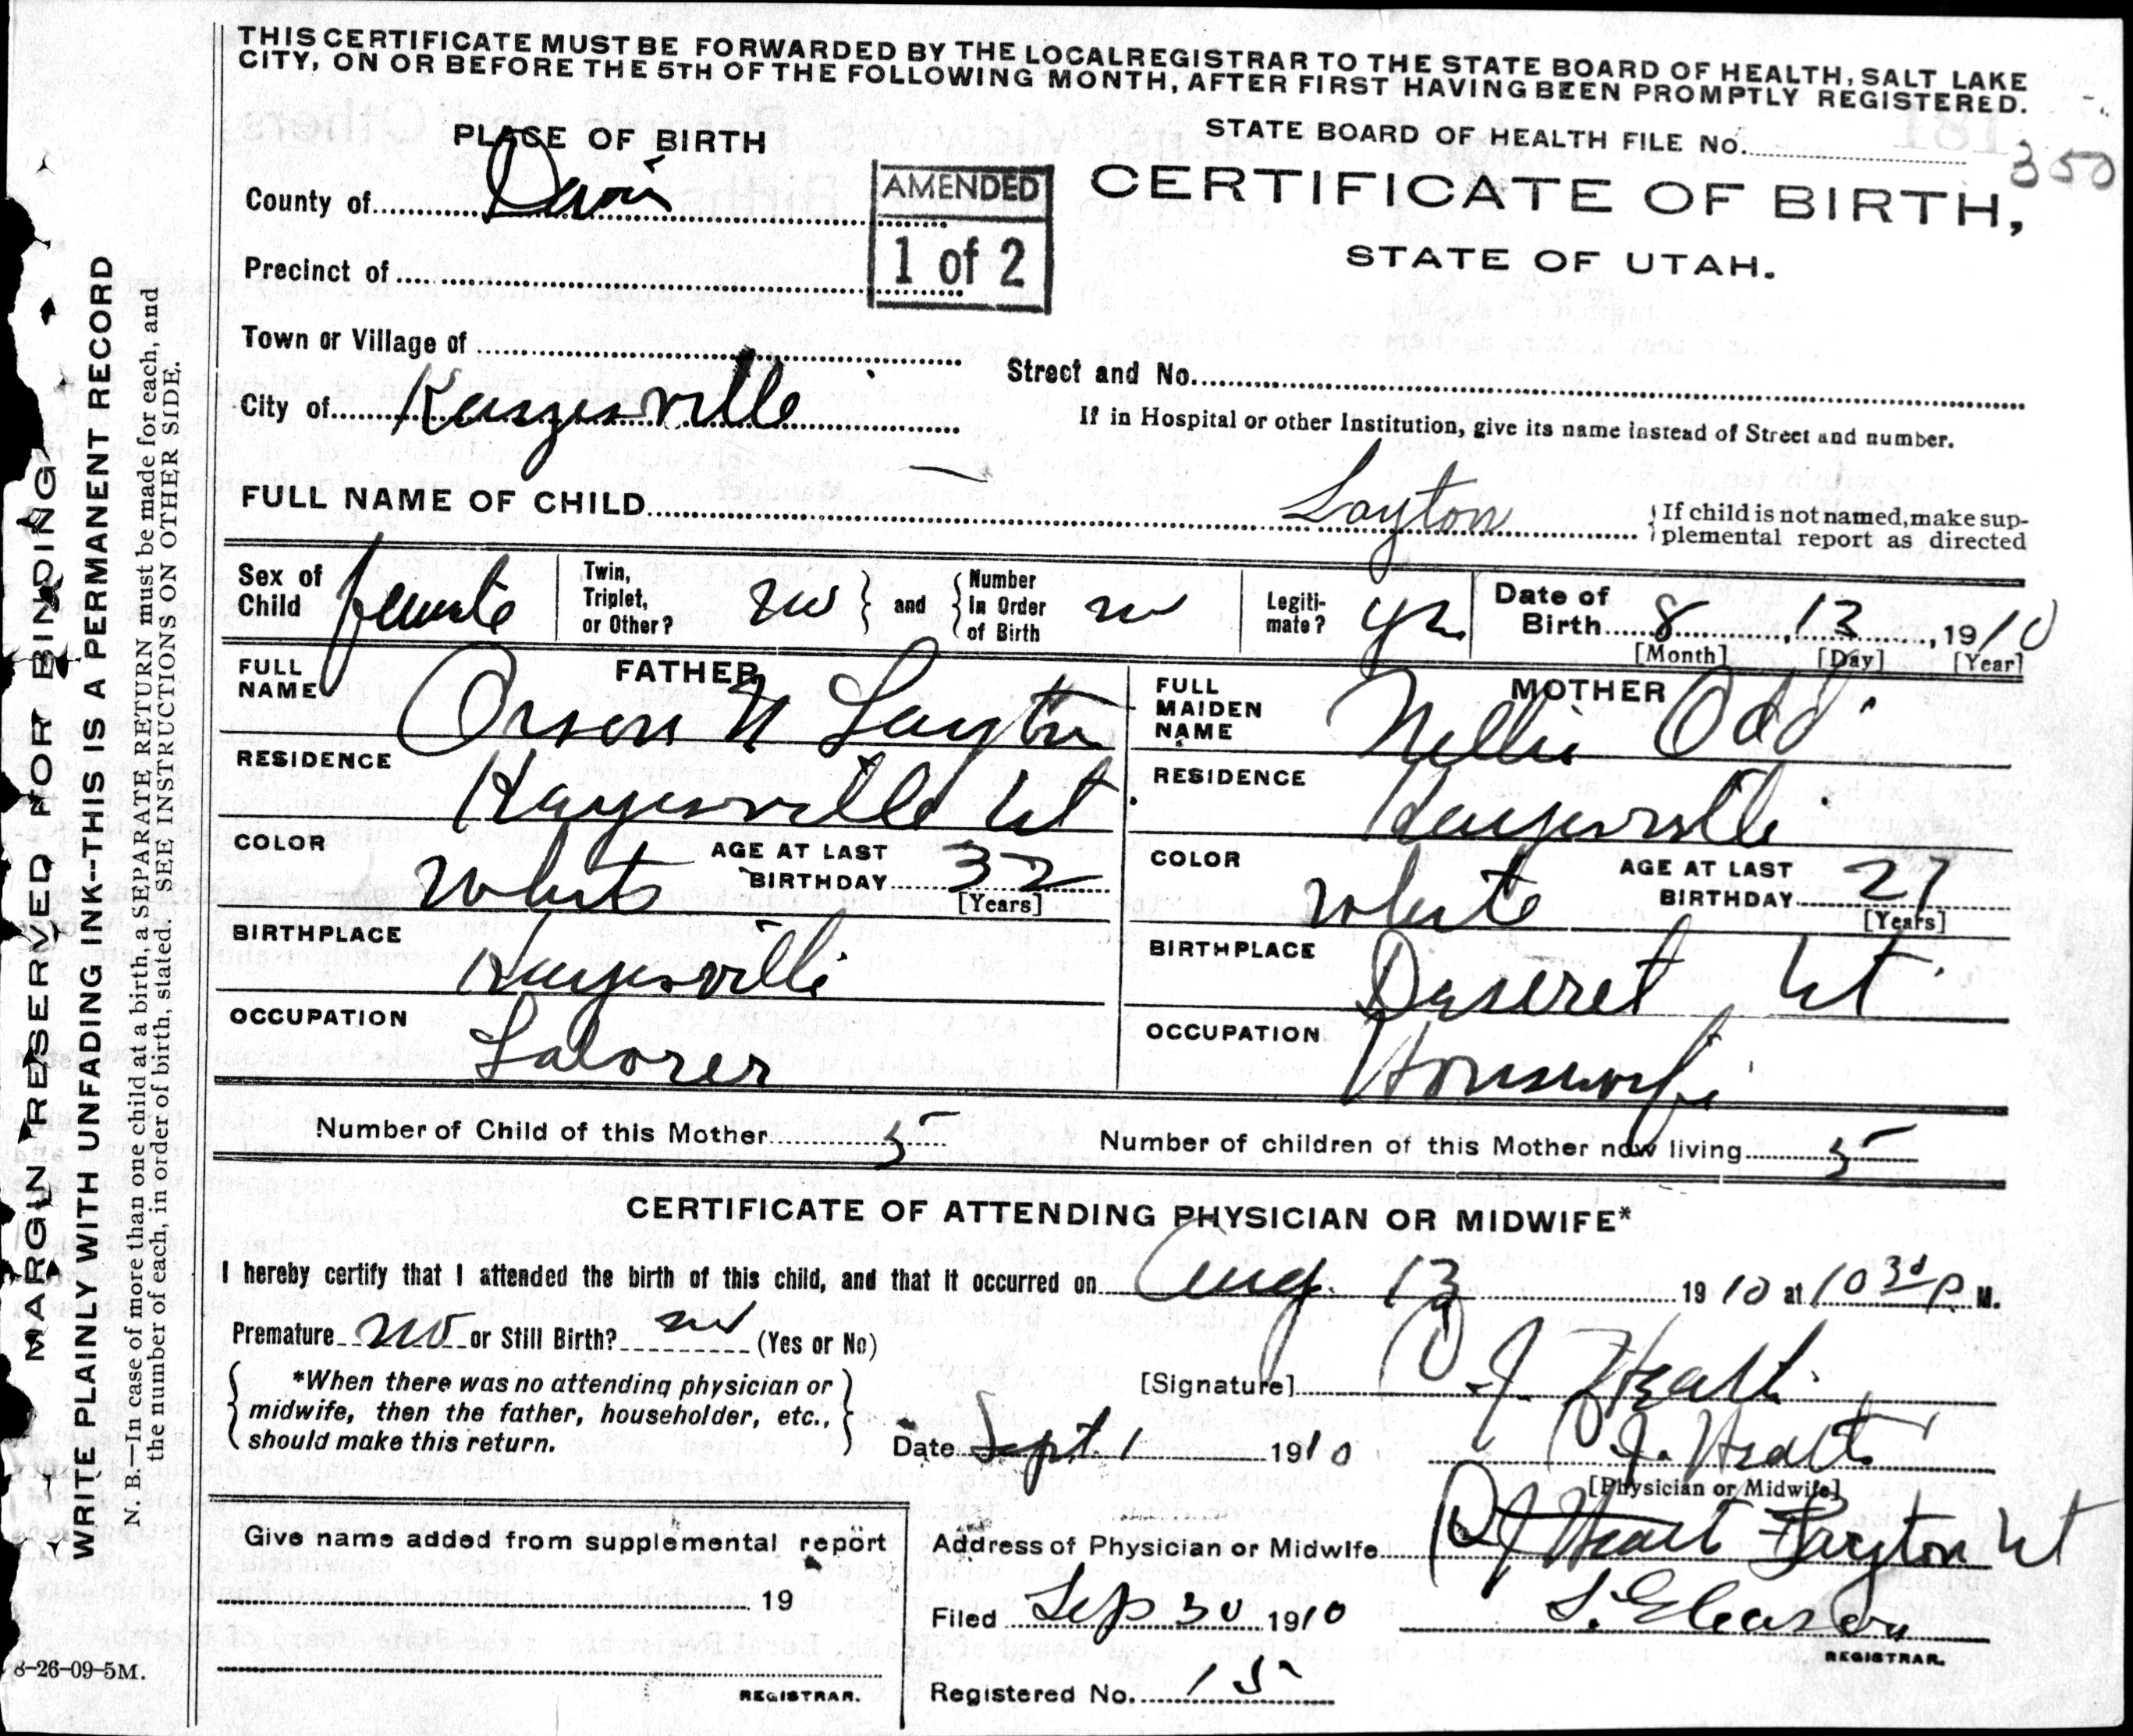 THIS CERTIFICATE MUST BE FORWARDED BY THE LOCAL REGISTRAR TO THE STATE BOARD OF HEALTH, SALT LAKE
CITY, ON OR BEFORE THE 5TH OF THE FOLLOWING MONTH, AFTER FIRST HAVING BEEN PROMPTLY REGISTERED.
PLACE OF BIRTH
STATE BOARD OF HEALTH FILE No. 350
County of Davis
AMENDED
1 of 2
CERTIFICATE OF BIRTH,
STATE OF UTAH.
Precinct of
Town or Village of
Street and No.
City of Kaysville
If in Hospital or other Institution, give its name instead of Street and number.
FULL NAME OF CHILD Layton
If child is not named, make sup-
plemental report as directed
Sex of Child female
Twin, Triplet, or Other? no
and Number in Order of Birth no
Legiti-mate? yes
Date of Birth 8, 13, 1910
[Month] [Day] [Year]
FATHER
FULL NAME Orson N Layton
RESIDENCE Kaysville Ut
COLOR White
AGE AT LAST BIRTHDAY 32
[Years]
BIRTHPLACE Kaysville
OCCUPATION Laborer
MOTHER
FULL MAIDEN NAME Nellie Odd
RESIDENCE Kaysville
COLOR White
AGE AT LAST BIRTHDAY 27
[Years]
BIRTHPLACE Deseret Ut
OCCUPATION Housewife
Number of Child of this Mother 5
Number of children of this Mother now living 5
CERTIFICATE OF ATTENDING PHYSICIAN OR MIDWIFE*
I hereby certify that I attended the birth of this child, and that it occurred on Aug. 13 1910 at 10 30 P M.
Premature no or Still Birth? no (Yes or No)
*When there was no attending physician or
midwife, then the father, householder, etc.,
should make this return.
[Signature]
Date Sept. 1 1910
[Physician or Midwife]
Give name added from supplemental report
19
REGISTRAR.
Address of Physician or Midwife Layton Ut
Filed Sep 30 1910
REGISTRAR.
Registered No. 15
MARGIN RESERVED FOR BINDING
WRITE PLAINLY WITH UNFADING INK--THIS IS A PERMANENT RECORD
N. B.—In case of more than one child at a birth, a SEPARATE RETURN must be made for each, and
the number of each, in order of birth, stated. SEE INSTRUCTIONS ON OTHER SIDE.
8-26-09-5M.